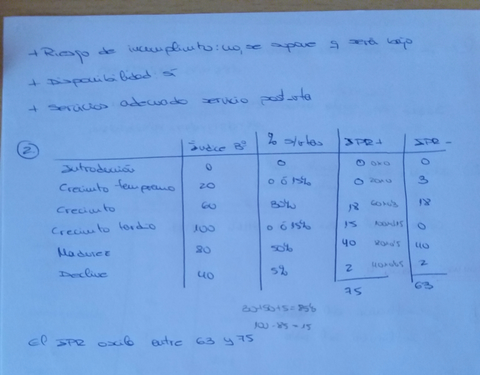 + Riesgo de incumplimto: no, se supone q será bajo
+ Disponibilidad sí
+ Servicios adecuado servicio postvta
2 Índice Bº % s/vtas IPR+ IPR-
Introducción 0 0 0 0x0 0
Crecimto temprano 20 0 ó 15% 0 20x0 3
Crecimto 60 30% 18 60x0'3 18
Crecimto tardío 100 0 ó 15% 15 100x0'15 0
Madurez 80 50% 40 80x0'5 40
Declive 40 5% 2 40x0'05 2
75 63
30+50+5=85%
100-85=15
El IPR oscila entre 63 y 75